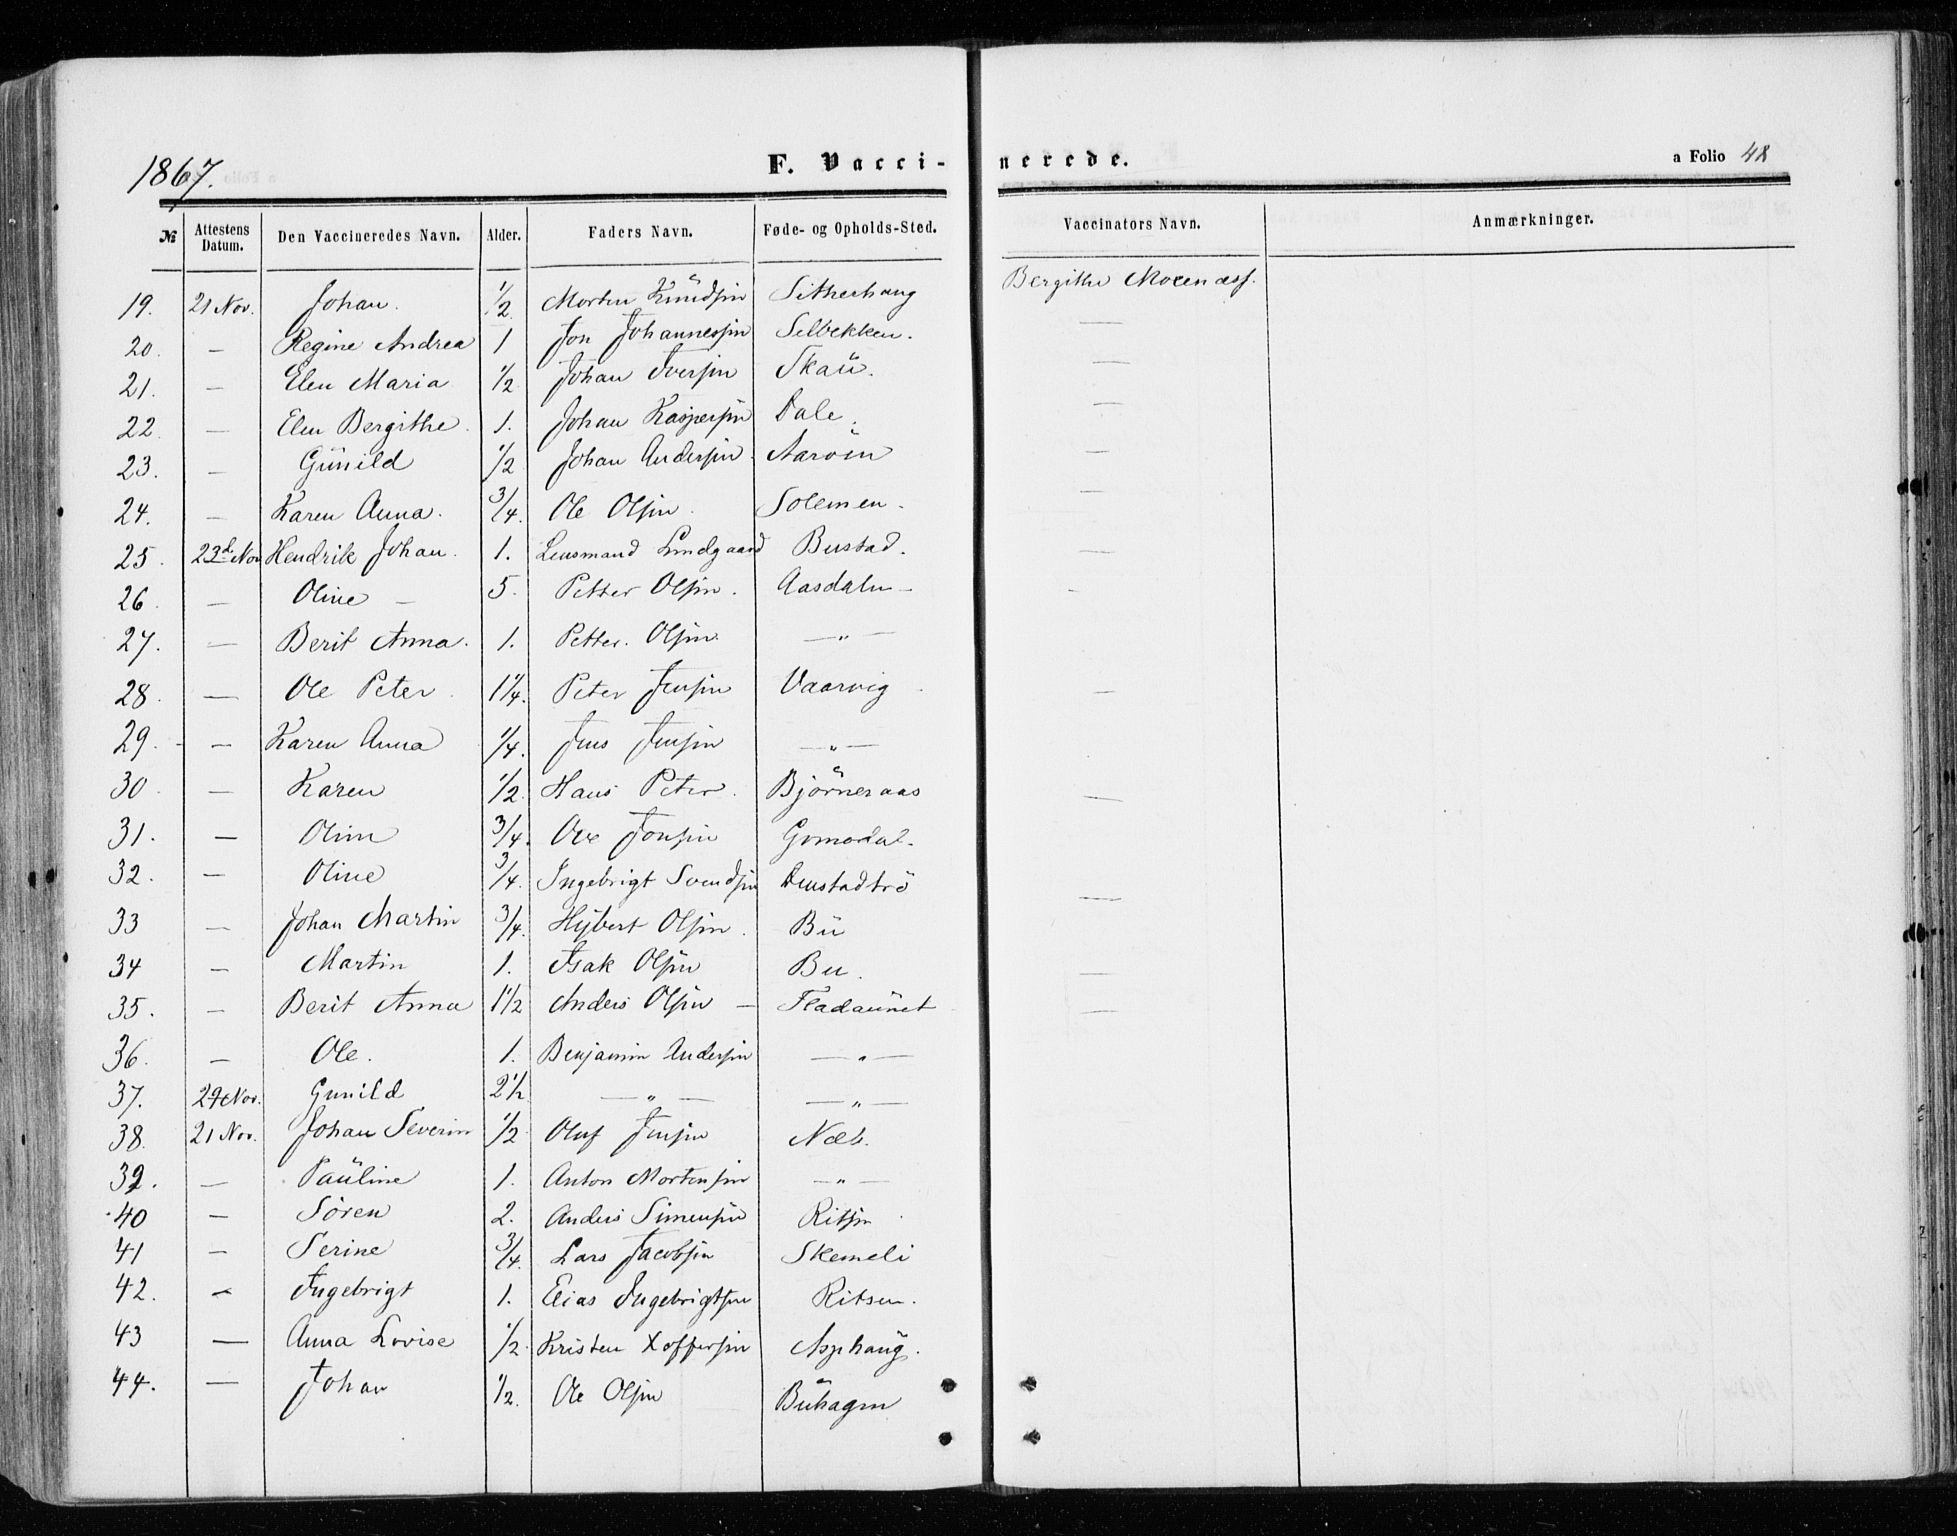 1867. F. Vaccinerede. a Folio 48
№ Attestens Datum. Den Vaccineredes Navn. Alder. Faders Navn. Føde- og Opholds-Sted. Vaccinators Navn. Anmærkninger.
19. 21 Nov. Johan. 1/2 Morten Knüdsen Sitherhaug Bergithe
20. — Regine Andrea 1 Jon Johannesen Selbekken. —
21. — Elen Maria 1/2 Johan Iversen Skaü. —
22 — Elen Bergithe. 1. Johan Kaspersen Dale. —
23. — Günild 1/2 Johan Andersen Aaröen —
24. — Karen Anna. 3/4. Ole Olsen. Solemen. —
25. 23d Nov Hendrik Johan. 1. Lensmand Lindgaard Bustad.
26. — Oline — 5. Petter Olsen. Aasdalen — -
27. — Berit Anna. 1. Petter. Olsen —"—
28. — Ole Peter. 1 1/4. Peter Jensen Vaarvig —
29. — Karen Anna 1/4. Jens Jensen —"—
30. — Karen 1/2. Hans Peter. Björneraas —
31. — Oline 3/4. Ove Jonsen
32. — Oline 3/4. Ingebrigt Svendsen
33 — Johan Martin 3/4. Olsen. Bü —
34 — Martin 1. Isak Olsen Bu. —
35. — Berit Anna 1 1/2 Anders Olsen — Fladaünet —
36. — Ole. 1. Benjamin Andersen —"—
37. 29 Nov. Gunild 2 1/2 —"— —"—
38. 21 Nov. Johan Severin 1/2 Oluf Jensen Næb.
39. — Paüline 1. Anton Mortensen —"—
40 — Sören 2. Anders Simensen Ritsen
41 — Serine 3/4. Lars Jacobsen Skemeli
42. — Ingebrigt 1. Elias Ingebrigtsen Ritsen.
43 — Anna Lovise 1/2. Kristen Xoffersen Asphaüg.
44. — Johan 1/2. Ole Olsen Bühagen